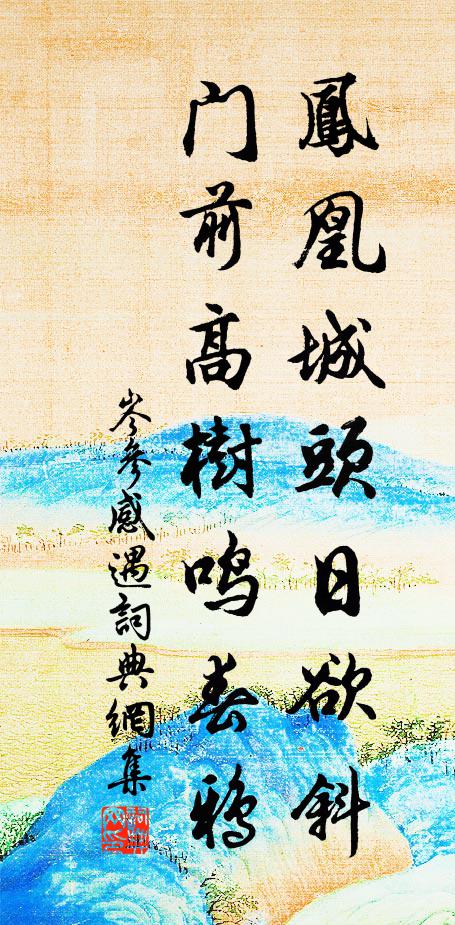 鳳凰城頭日欲斜
门前高樹鳴春鴉
岑參感遇詞典網集